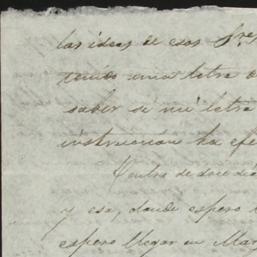 las ideas de esos Sres
tenido una letra d
saber si mi letra
instruccion ha efe
Dentro de doce dia
y esa, donde espero
espero llegar en Mar